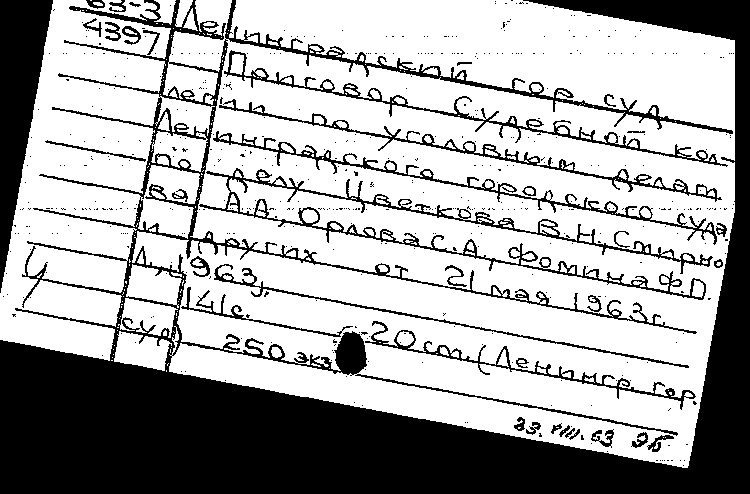 63-3
4397
Ленинградский гор. суд.
Приговор Судебной кол-
легии по уголовным делам
Ленинградского городского суда
по делу Цветкова В.Н., Смирно
ва А.А., Орлова С.А., Фомина Ф.D.
и других от 21 мая 1963г.
Л., 1963г.
141с. 20 cm. (Ленингр. гор.
суд) 250 экз.
23.VIII.63 ЭБ